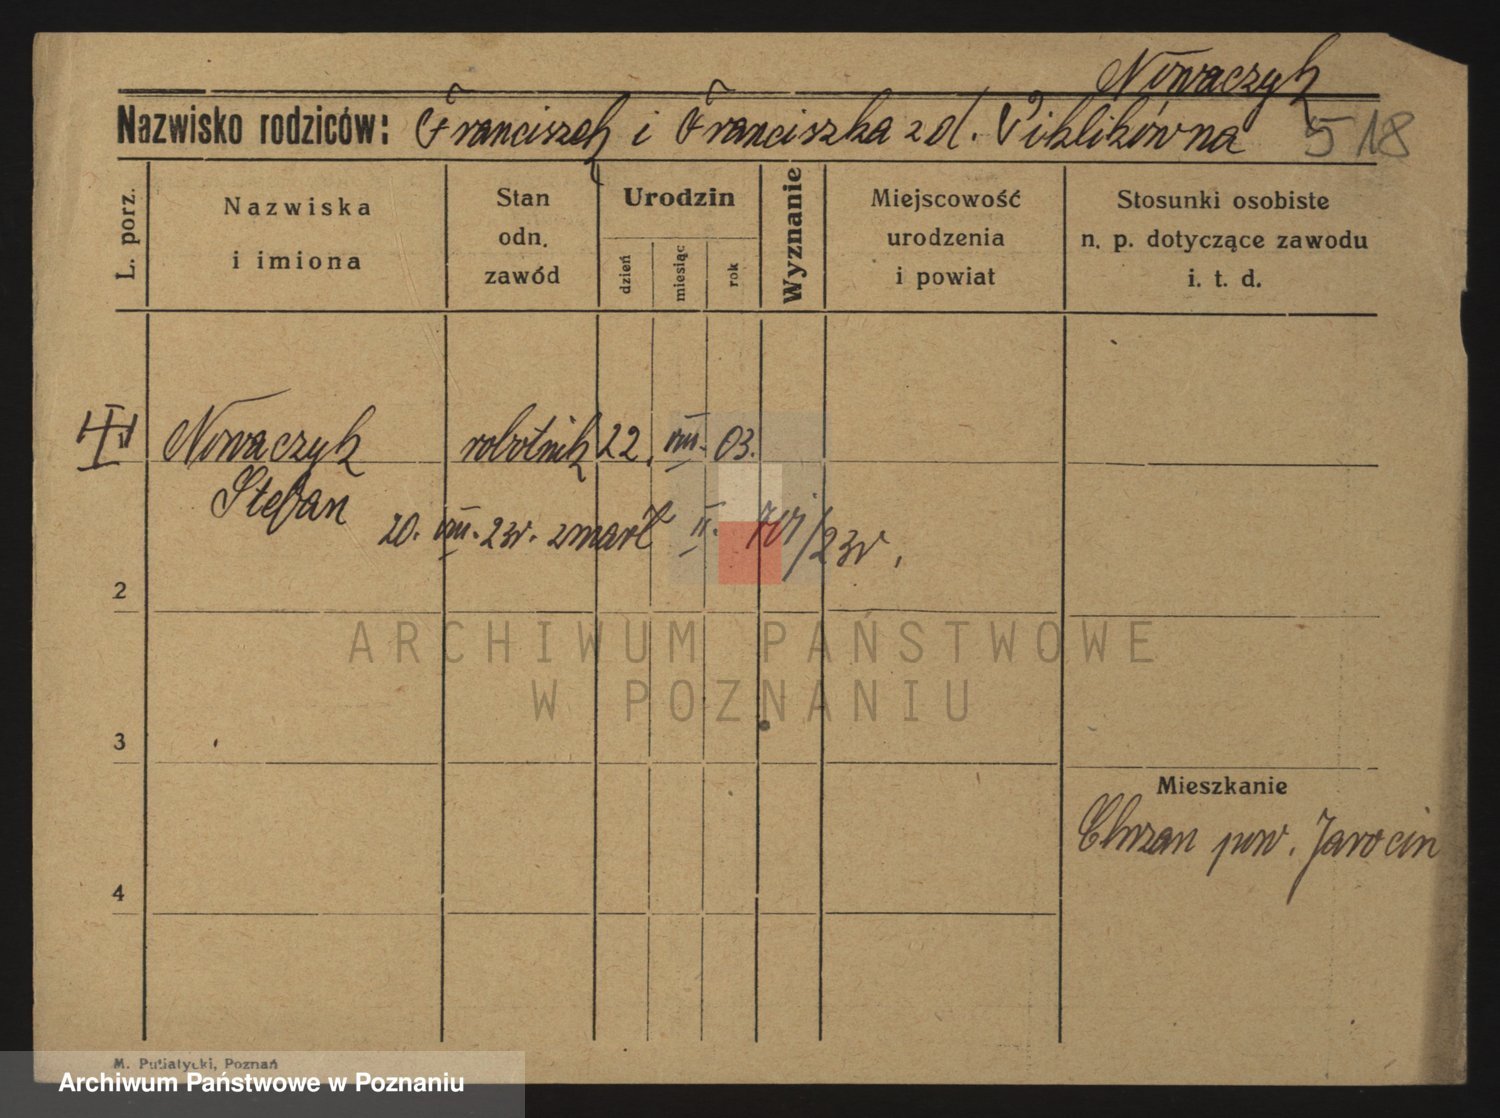 Nowaczyk
Nazwisko rodziców: Franciszek i Franciszka z d. 518
L. porz.
Nazwiska
i imiona
Stan
odn.
zawód
Urodzin
dzień
miesiąc
rok
Wyznanie
Miejscowość
urodzenia
i powiat
Stosunki osobiste
n. p. dotyczące zawodu
i. t. d.
Nowaczyk robotnik 22. VIII. 03.
Stefan
20. VIII. 23r. zmarł II. /23r.
2
3
4
Mieszkanie
Chrzan pow. Jarocin
ARCHIWUM PAŃSTWOWE
W POZNANIU
M. Putiatycki, Poznań
Archiwum Państwowe w Poznaniu